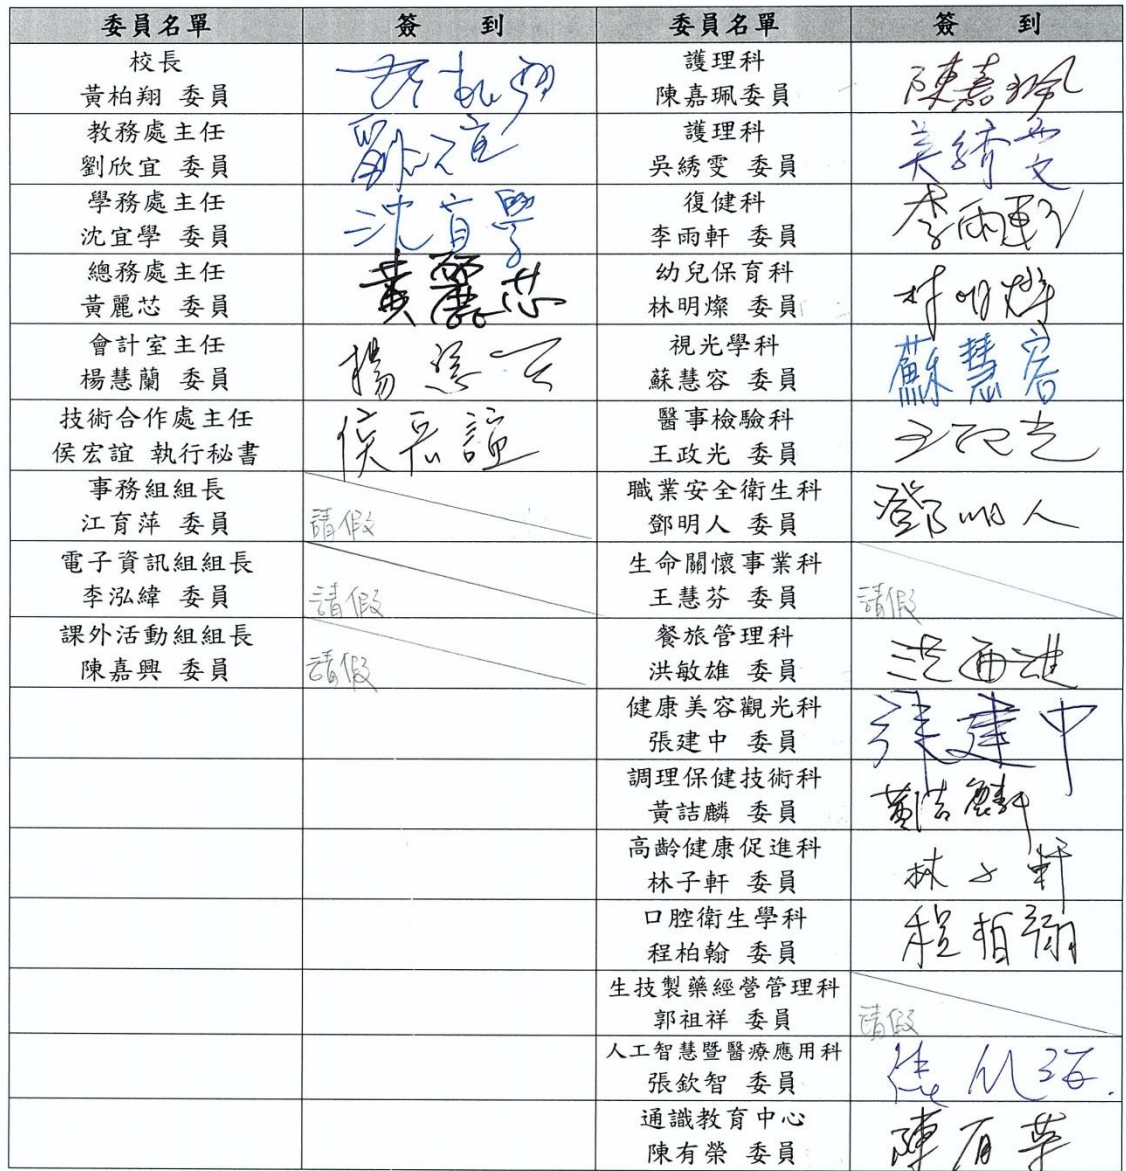 委員名單 簽 到 委員名單 簽 到
校長
黃柏翔 委員
護理科
陳嘉珮委員 陳嘉珮
教務處主任
劉欣宜 委員 劉欣宜
護理科
吳綉雯 委員 吳綉雯
學務處主任
沈宜學 委員 沈宜學
復健科
李雨軒 委員 李雨軒
總務處主任
黃麗芯 委員 黃麗芯
幼兒保育科
林明燦 委員 林明燦
會計室主任
楊慧蘭 委員 楊慧
視光學科
蘇慧容 委員 蘇慧容
技術合作處主任
侯宏誼 執行秘書 侯宏誼
醫事檢驗科
王政光 委員 王政光
事務組組長
江育萍 委員 請假
職業安全衛生科
鄧明人 委員 鄧明人
電子資訊組組長
李泓緯 委員 請假
生命關懷事業科
王慧芬 委員 請假
課外活動組組長
陳嘉興 委員 請假
餐旅管理科
洪敏雄 委員
健康美容觀光科
張建中 委員 張建中
調理保健技術科
黃詰麟 委員 黃詰麟
高齡健康促進科
林子軒 委員 林子軒
口腔衛生學科
程柏翰 委員 程柏翰
生技製藥經營管理科
郭祖祥 委員 請假
人工智慧暨醫療應用科
張欽智 委員
通識教育中心
陳有榮 委員 陳有榮